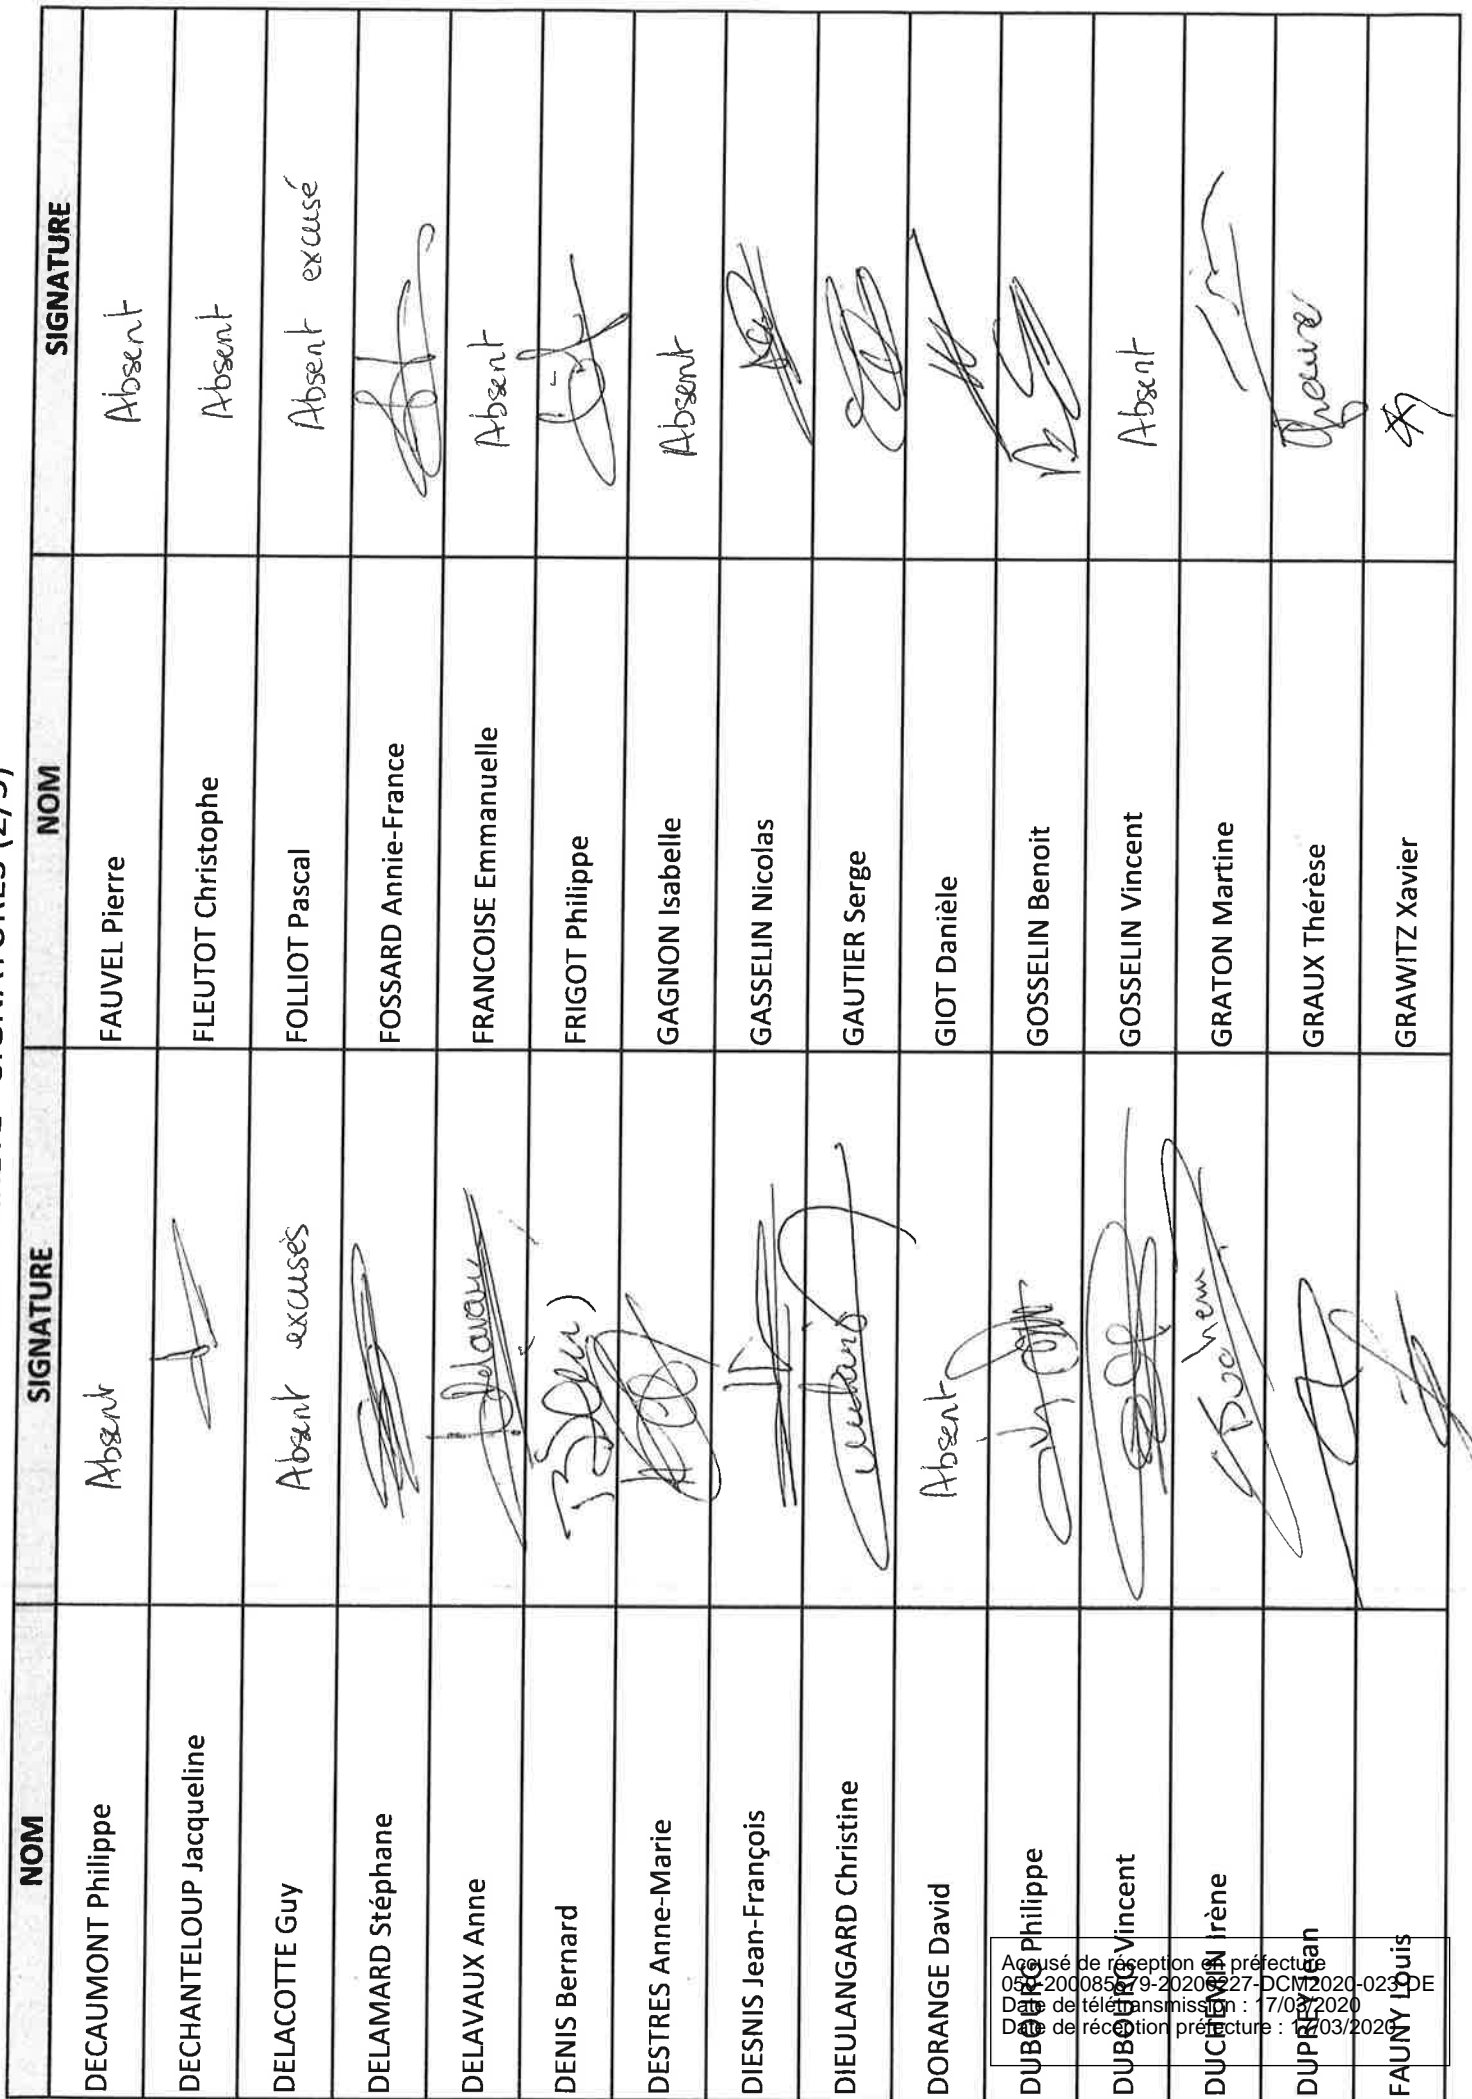 SIGNATURES (2/5)
NOM SIGNATURE NOM SIGNATURE
DECAUMONT Philippe Absent FAUVEL Pierre Absent
DECHANTELOUP Jacqueline FLEUTOT Christophe Absent
DELACOTTE Guy Absent excusés FOLLIOT Pascal Absent excusé
DELAMARD Stéphane FOSSARD Annie-France
DELAVAUX Anne Delavaux FRANCOISE Emmanuelle Absent
DENIS Bernard FRIGOT Philippe
DESTRES Anne-Marie GAGNON Isabelle Absent
DIESNIS Jean-François GASSELIN Nicolas
DIEULANGARD Christine GAUTIER Serge
DORANGE David Absent GIOT Danièle
DUBOURG Philippe GOSSELIN Benoit
DUBOURG Vincent GOSSELIN Vincent Absent
DUCHEMIN Irène GRATON Martine
DUPREY Jean GRAUX Thérèse
FAUNY Louis GRAWITZ Xavier
Accusé de réception en préfecture
Date de télétransmission : 17/03/2020
Date de réception préfecture : 17/03/2020